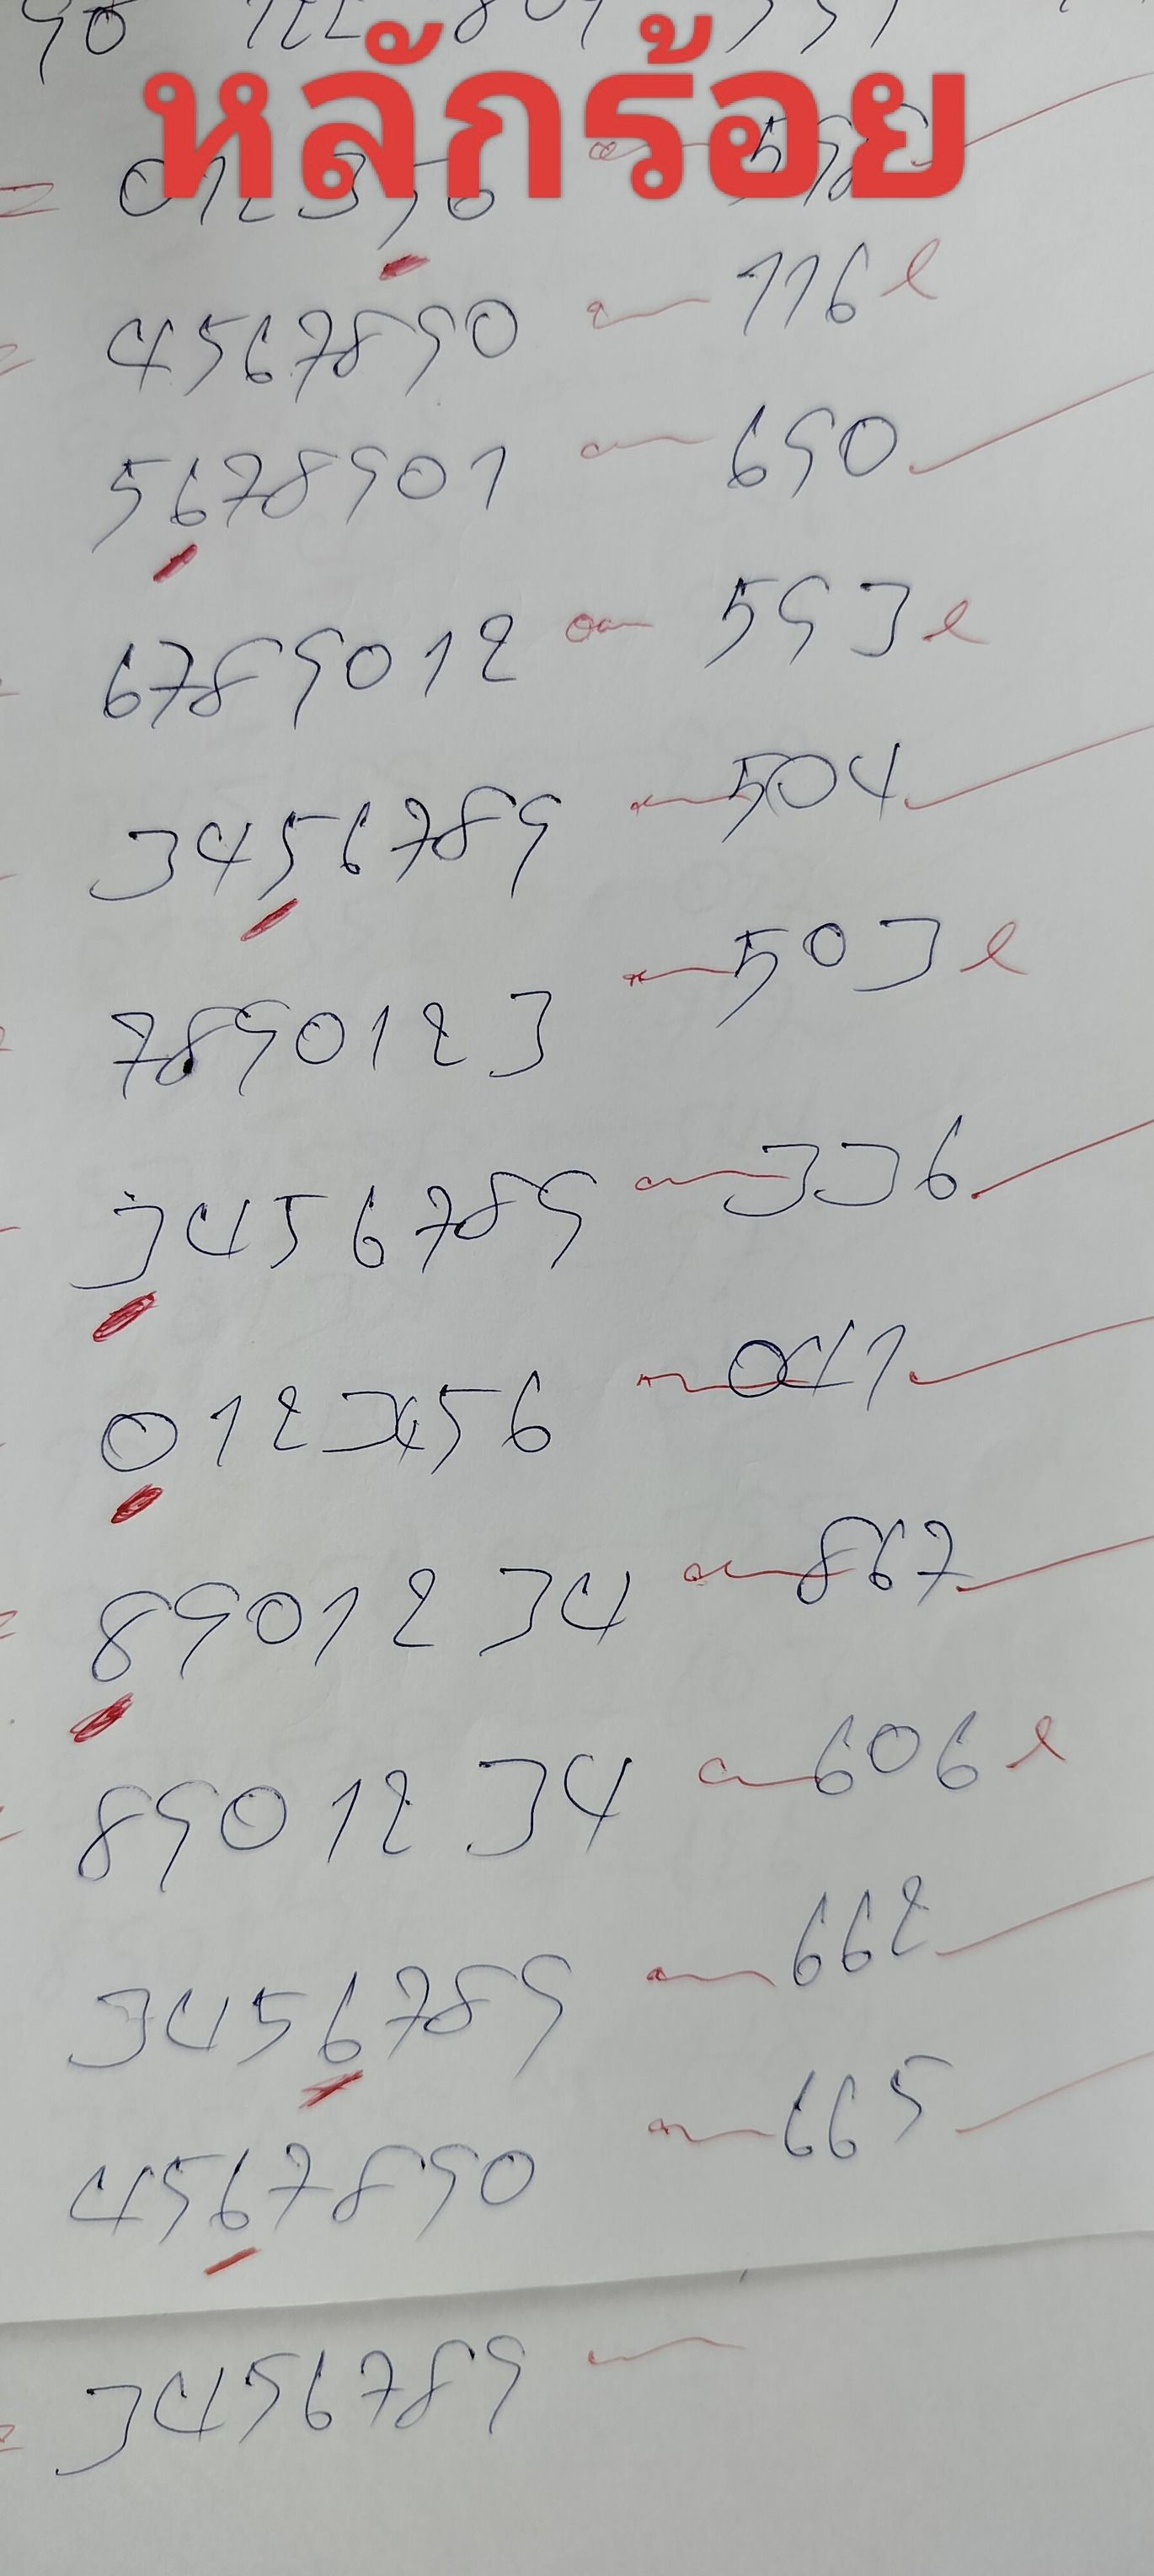 หลักร้อย
4567890 116
5678901 690
6789012 593
3456789 504
7890123 503
3456789 336
0123456 041
8901234 867
8901234 606
3456789 662
4567890 665
3456789